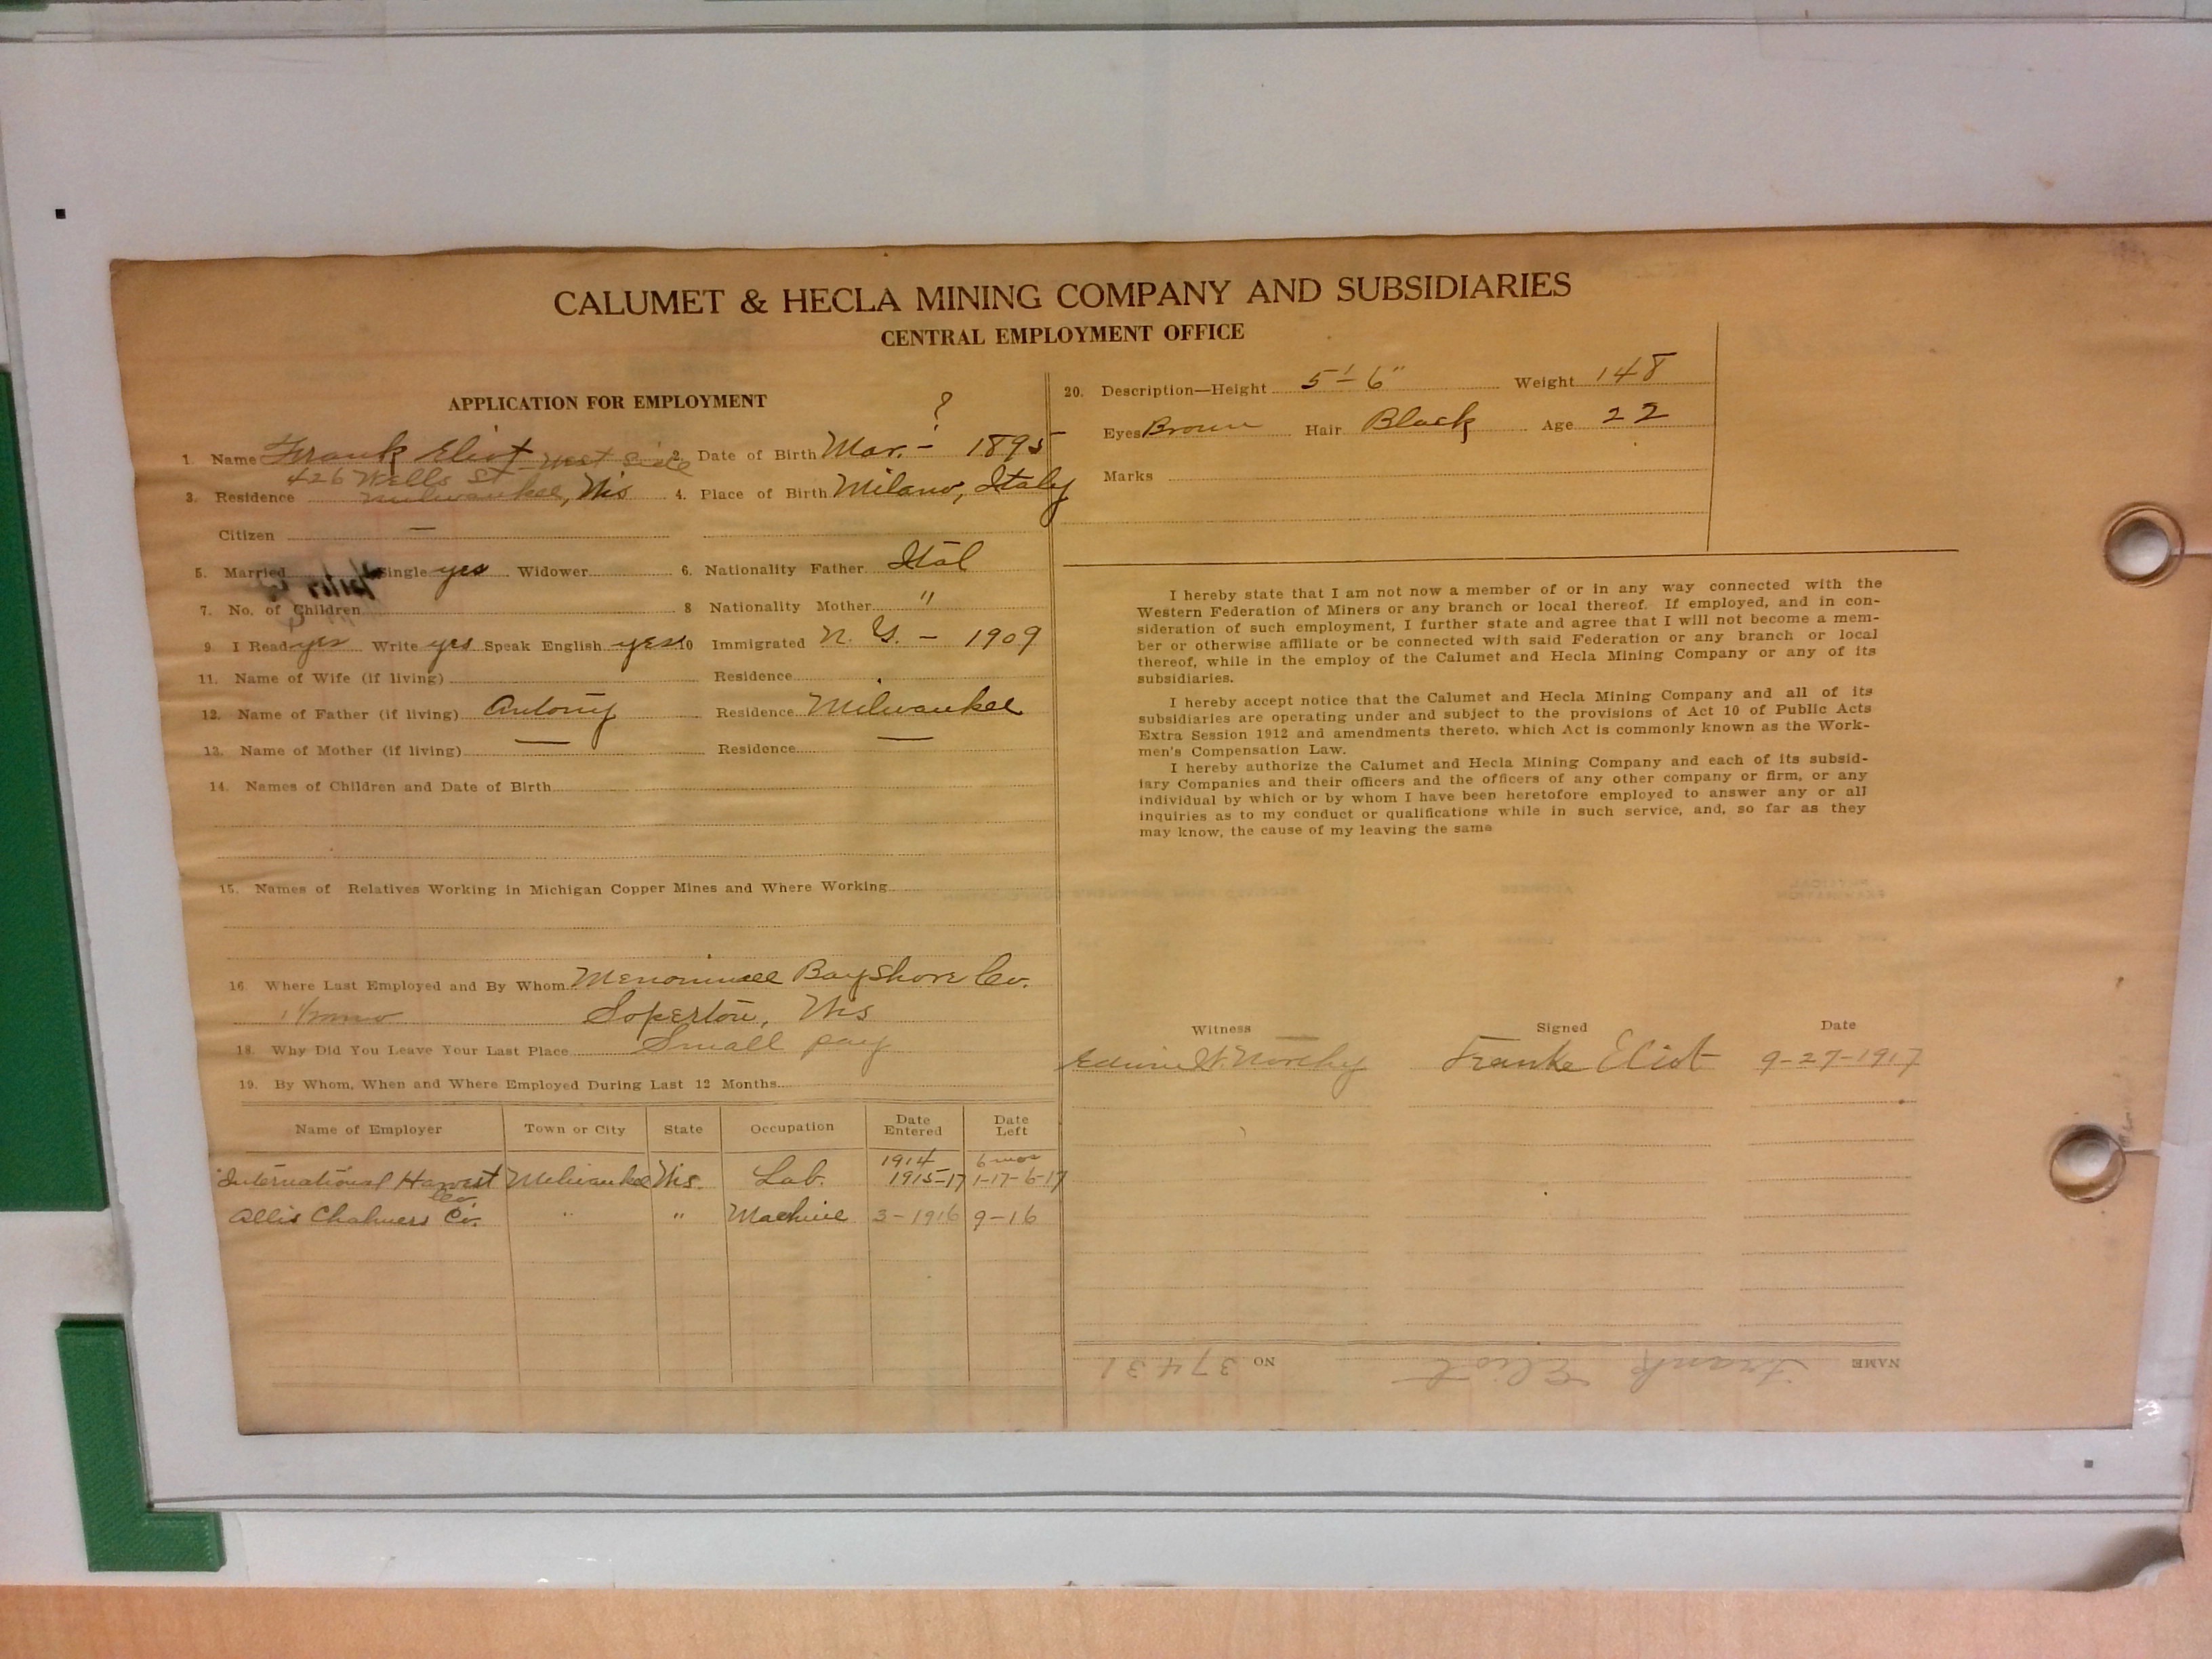 CALUMET & HECLA MINING COMPANY AND SUBSIDIARIES
CENTRAL EMPLOYMENT OFFICE
APPLICATION FOR EMPLOYMENT
1. Name Frank Eliot West Side
2. Date of Birth Mar. - ? 1895
426 Wells St
3. Residence Milwaukee, Wis
4. Place of Birth Milano, Italy
Citizen —
5. Married Single yes Widower
6. Nationality Father Ital
7. No. of Children
8 Nationality Mother "
9. I Read yes Write yes Speak English yes
10 Immigrated N. Y. - 1909
11. Name of Wife (if living) Residence
12. Name of Father (if living) Antony Residence Milwaukee
13. Name of Mother (if living) — Residence —
14. Names of Children and Date of Birth
15. Names of Relatives Working in Michigan Copper Mines and Where Working
16. Where Last Employed and By Whom Menominee Bay Shore Co.
Soperton, Wis
18. Why Did You Leave Your Last Place Small pay
19. By Whom, When and Where Employed During Last 12 Months
Name of Employer Town or City State Occupation Date Entered Date Left
1914 6 mos
International Harvest Co. Milwaukee Wis. Lab. 1915-17 1-17-6-17
Allis Chalmers Co. " " Machine 3-1916 9-16
20. Description—Height 5'-6" Weight 148
Eyes Brown Hair Black Age 22
Marks
I hereby state that I am not now a member of or in any way connected with the
Western Federation of Miners or any branch or local thereof. If employed, and in con-
sideration of such employment, I further state and agree that I will not become a mem-
ber or otherwise affiliate or be connected with said Federation or any branch or local
thereof, while in the employ of the Calumet and Hecla Mining Company or any of its
subsidiaries.
I hereby accept notice that the Calumet and Hecla Mining Company and all of its
subsidiaries are operating under and subject to the provisions of Act 10 of Public Acts
Extra Session 1912 and amendments thereto, which Act is commonly known as the Work-
men's Compensation Law.
I hereby authorize the Calumet and Hecla Mining Company and each of its subsid-
iary Companies and their officers and the officers of any other company or firm, or any
individual by which or by whom I have been heretofore employed to answer any or all
inquiries as to my conduct or qualifications while in such service, and, so far as they
may know, the cause of my leaving the same
Witness Signed Date
Franke Eliot 9-27-1917
NAME Frank Eliot NO 37431